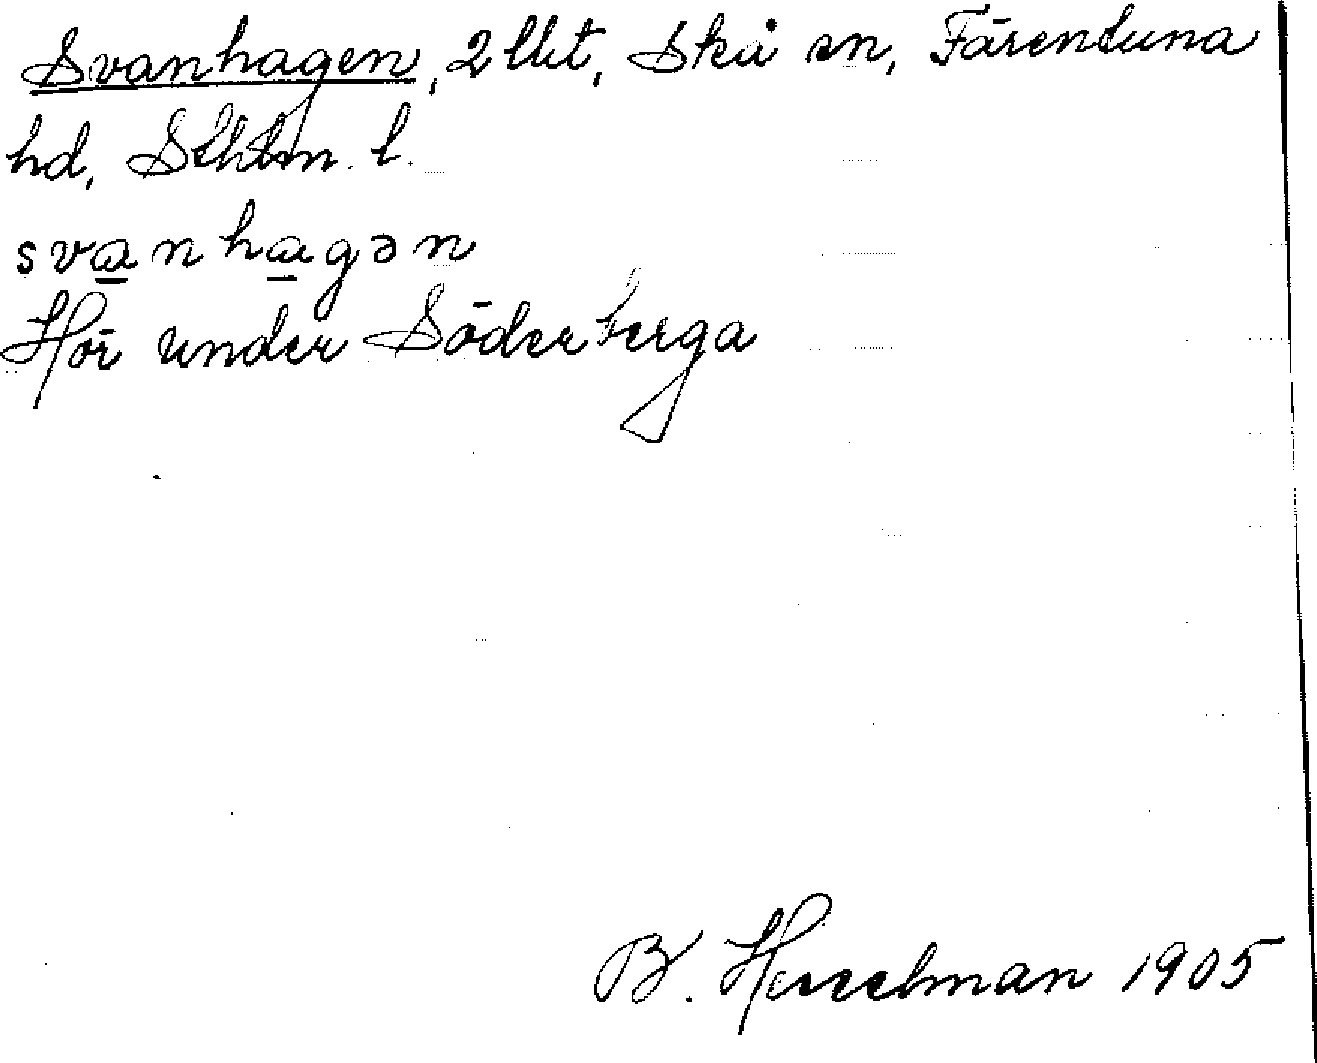 Svanhagen, 2 lht, Skå sn, Färentuna
hd, Sthlm. l.
svanhagən
Hör under Söderberga
B. Hesselman 1905